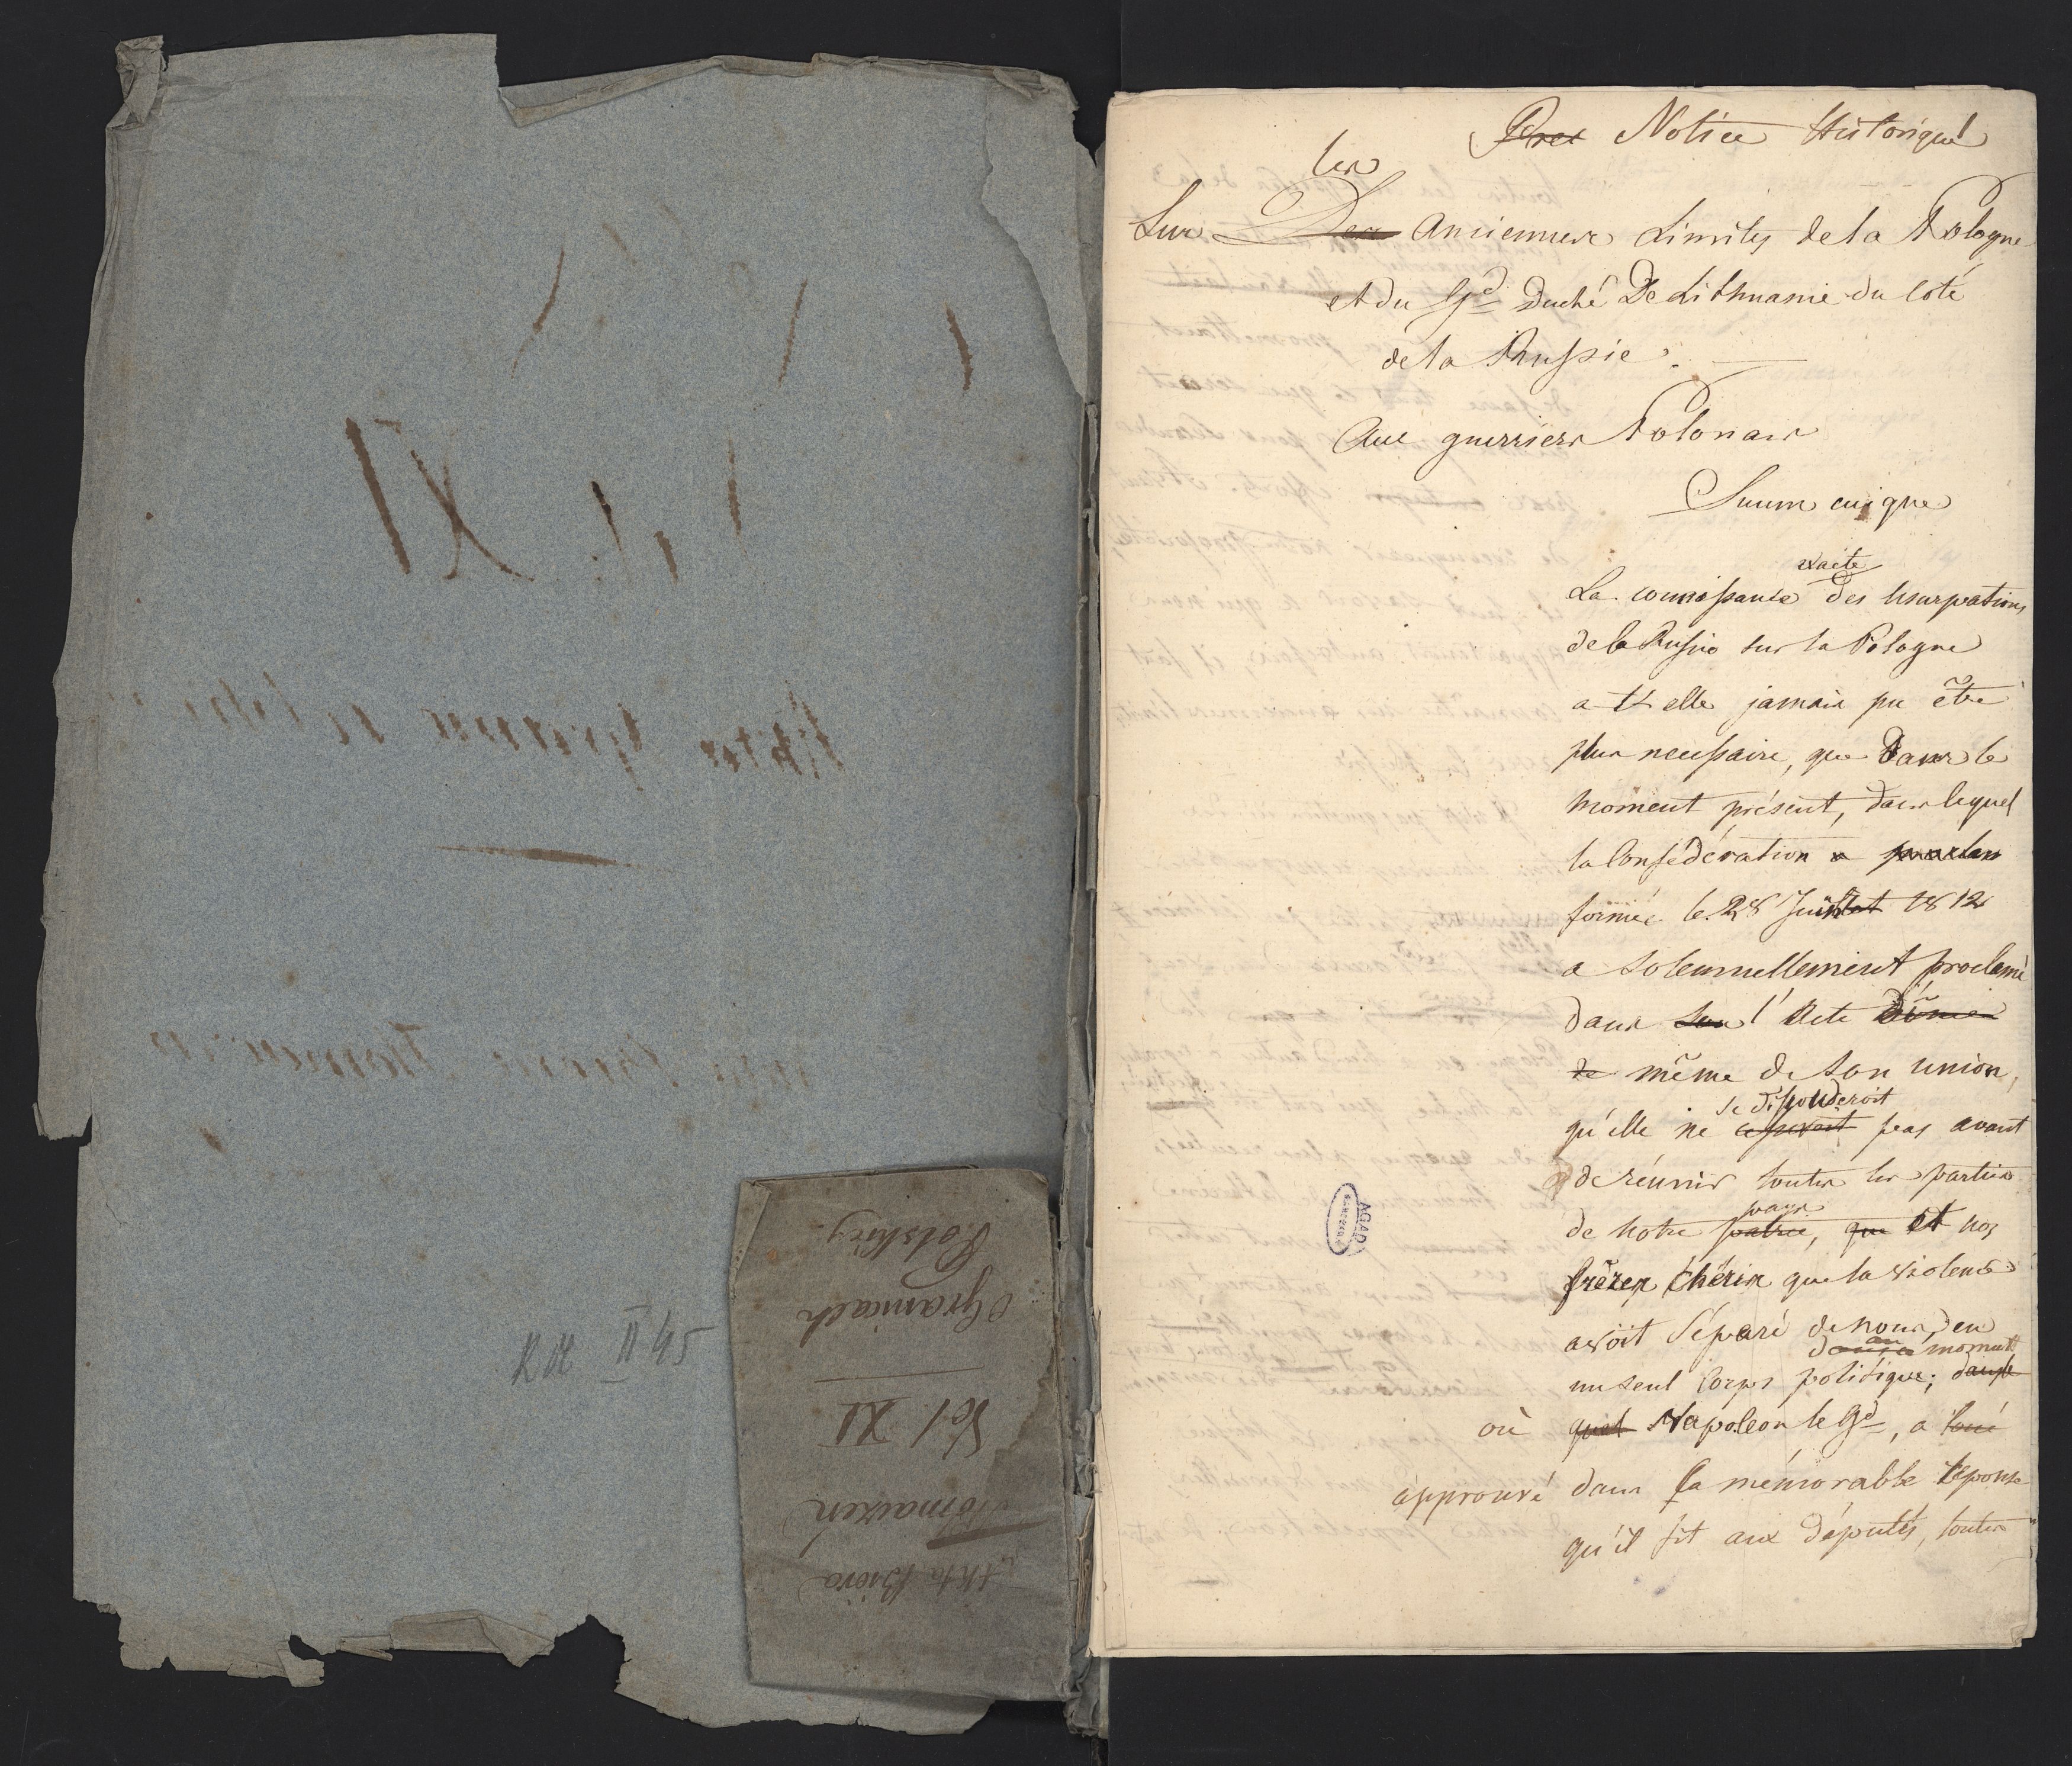 RR II 45
Akta Biora
Tłómaczeń
Vol. XI
O Granicach
Polskich
Notice Historique
les
Sur Des anciennes Limites de la Pologne
et du Gd Duché De Lithuanie du coté
de la Russie.
Aux guerriers Polonais
Suum cuique
exacte
La connoissance des Usurpations
de la Russie sur la Pologne
a-t-elle jamais pu être
plus necessaire, que dans le
moment présent, dans lequel
la Confédération a proclam
formée le 28 Juillet 1812
a Solemnellement proclamé
dans son l'Acte
de même de son union,
se dissouderoit
qu'elle ne cesseroit pas avant
de réunir toutes les parties
pays
de notre patrie, que et nos
frères chéris que la violence
avoit séparé de nous, en
dans ce au moment
un seul Corps politique; dans le
où quel Napoleon le Gd, a loué
approuvé dans sa mémorable reponse
qu'il fit aux députés, toutes
AGAD
WARSZAWA